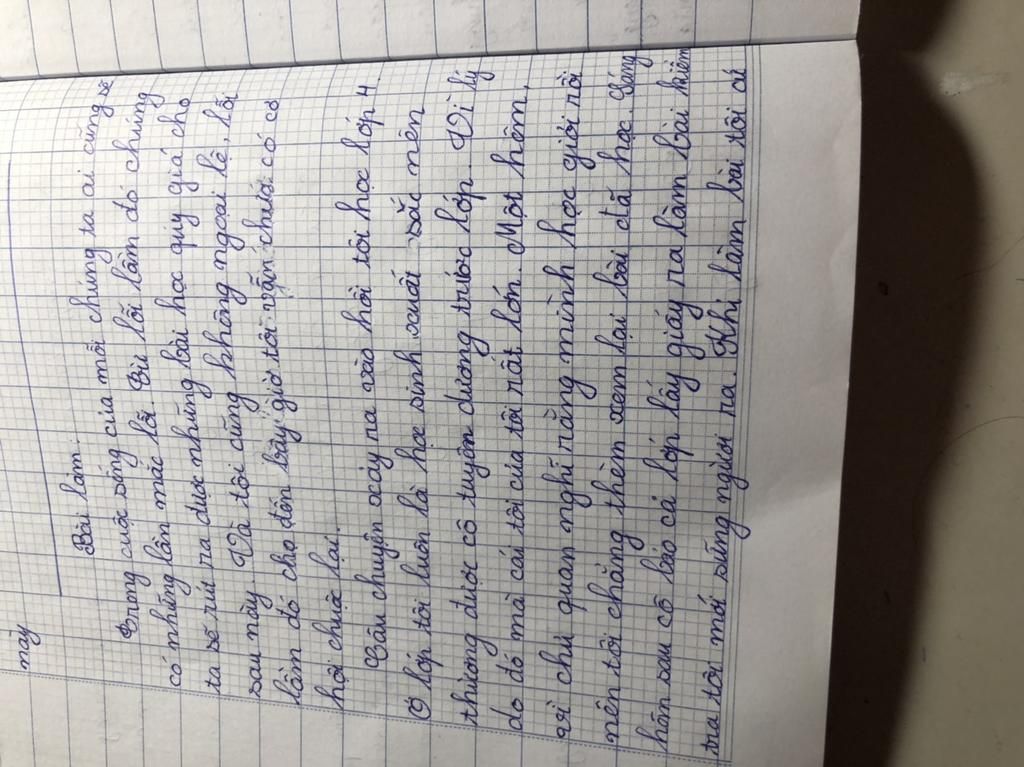 này
Bài làm.
Trong cuộc sống của mỗi chúng ta ai cũng sẽ
có những lần mắc lỗi. Bởi lỗi lầm đó chúng
ta sẽ rút ra được những bài học quý giá cho
sau này. Và tôi cũng không ngoại lệ, lỗi
lầm đó cho đến bây giờ tôi vẫn chưa có cơ
hội chuộc lại.
Câu chuyện xảy ra vào hồi tôi học lớp 4.
Ở lớp tôi luôn là học sinh xuất sắc nên
thường được cô tuyên dương trước lớp. Vì lý
do đó mà cái tôi của tôi rất lớn. Một hôm,
vì chủ quan nghĩ rằng mình học giỏi rồi
nên tôi chẳng thèm xem lại bài đã học. Sáng
hôm sau cô báo cả lớp lấy giấy ra làm bài kiểm
tra tôi mới sững người ra. Khi làm bài tôi cứ